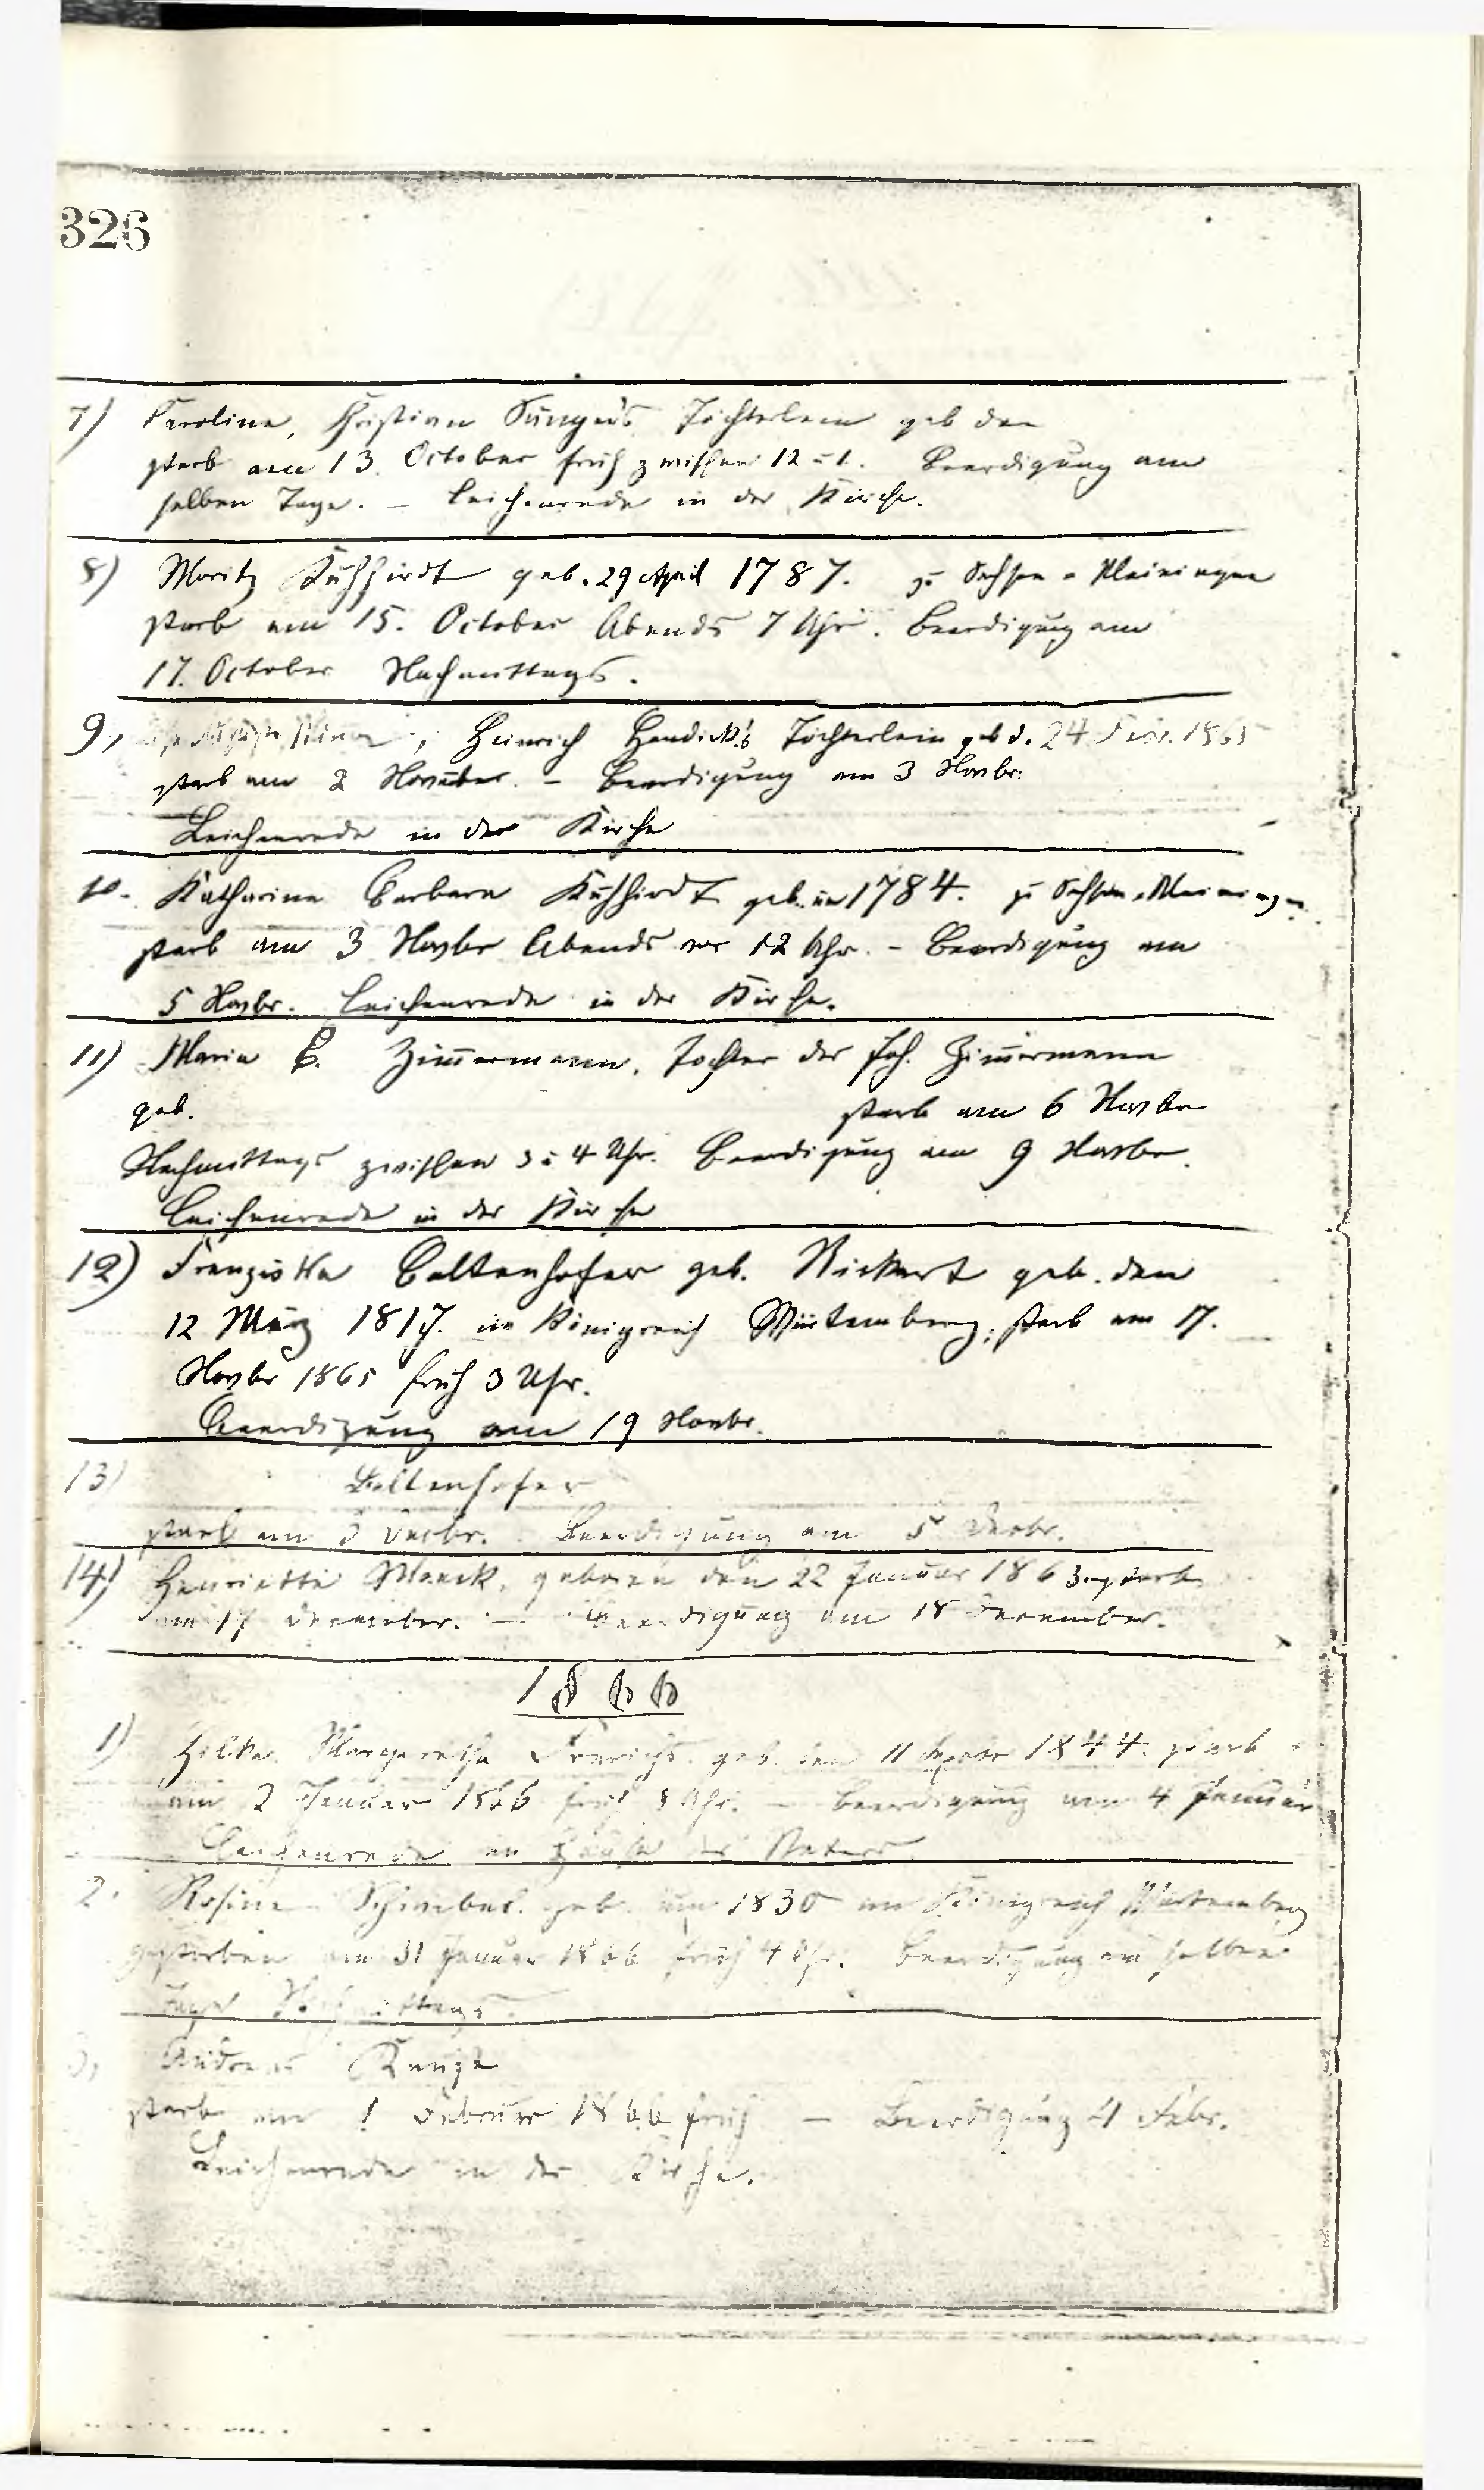 326
7) Caroline, Christian Bünger's Töchterlein geb den
starb am 13. October früh zwischen 12 u 1. Beerdigung am
selben Tage. – Leichenrede in der Kirche.
8) Moritz Kühhirdt geb. 29 April 1787. zu Sachsen-Meiningen
starb am 15. October Abends 7 Uhr. Beerdigung am
17. October Nachmittags.
9, Heinrich Töchterlein geb d. 24 1865
starb am 2 November. – Beerdigung am 3 Novbr.
Leichenrede in der Kirche
10. Katharina Barbara Kühhirdt geb. im 1784. zu Sachsen-Meiningen
starb am 3 Novbr Abends vor 12 Uhr. – Beerdigung am
5 Novbr. Leichenrede in der Kirche.
11) Maria E. Zimmermann, Tochter des Joh. Zimmermann
geb. starb am 6 Novbr
Nachmittags zwischen 3 u 4 Uhr. Beerdigung am 9 Novbr.
Leichenrede in der Kirche
12) Franziska Boltenhofer geb. Rickert geb. den
12 März 1817. im Königreich Würtemberg; starb am 17.
Novbr 1865 früh 3 Uhr.
Beerdigung am 19 Novbr.
13) Boltenhofer
starb am 3 Decbr. Beerdigung am 5 Decbr.
14) Henriette Monck, geboren den 22 Januar 1863. starb
am 17 December. – Beerdigung am 18 December.
1866
1) Margaretha geb. den 11 1844. starb
am 2 Januar 1866 früh 8 Uhr. – Beerdigung am 4 Januar
Leichenrede im Hause des Vaters
2. Rosine geb. im 1830 im Königreich Würtemberg
gestorben am 31 Januar 1866 früh 4 Uhr. Beerdigung am selben
Tage Nachmittags.
3, Andreas Runge
starb am 1 Februar 1866 früh – Beerdigung 4 Febr.
Leichenrede in der Kirche.